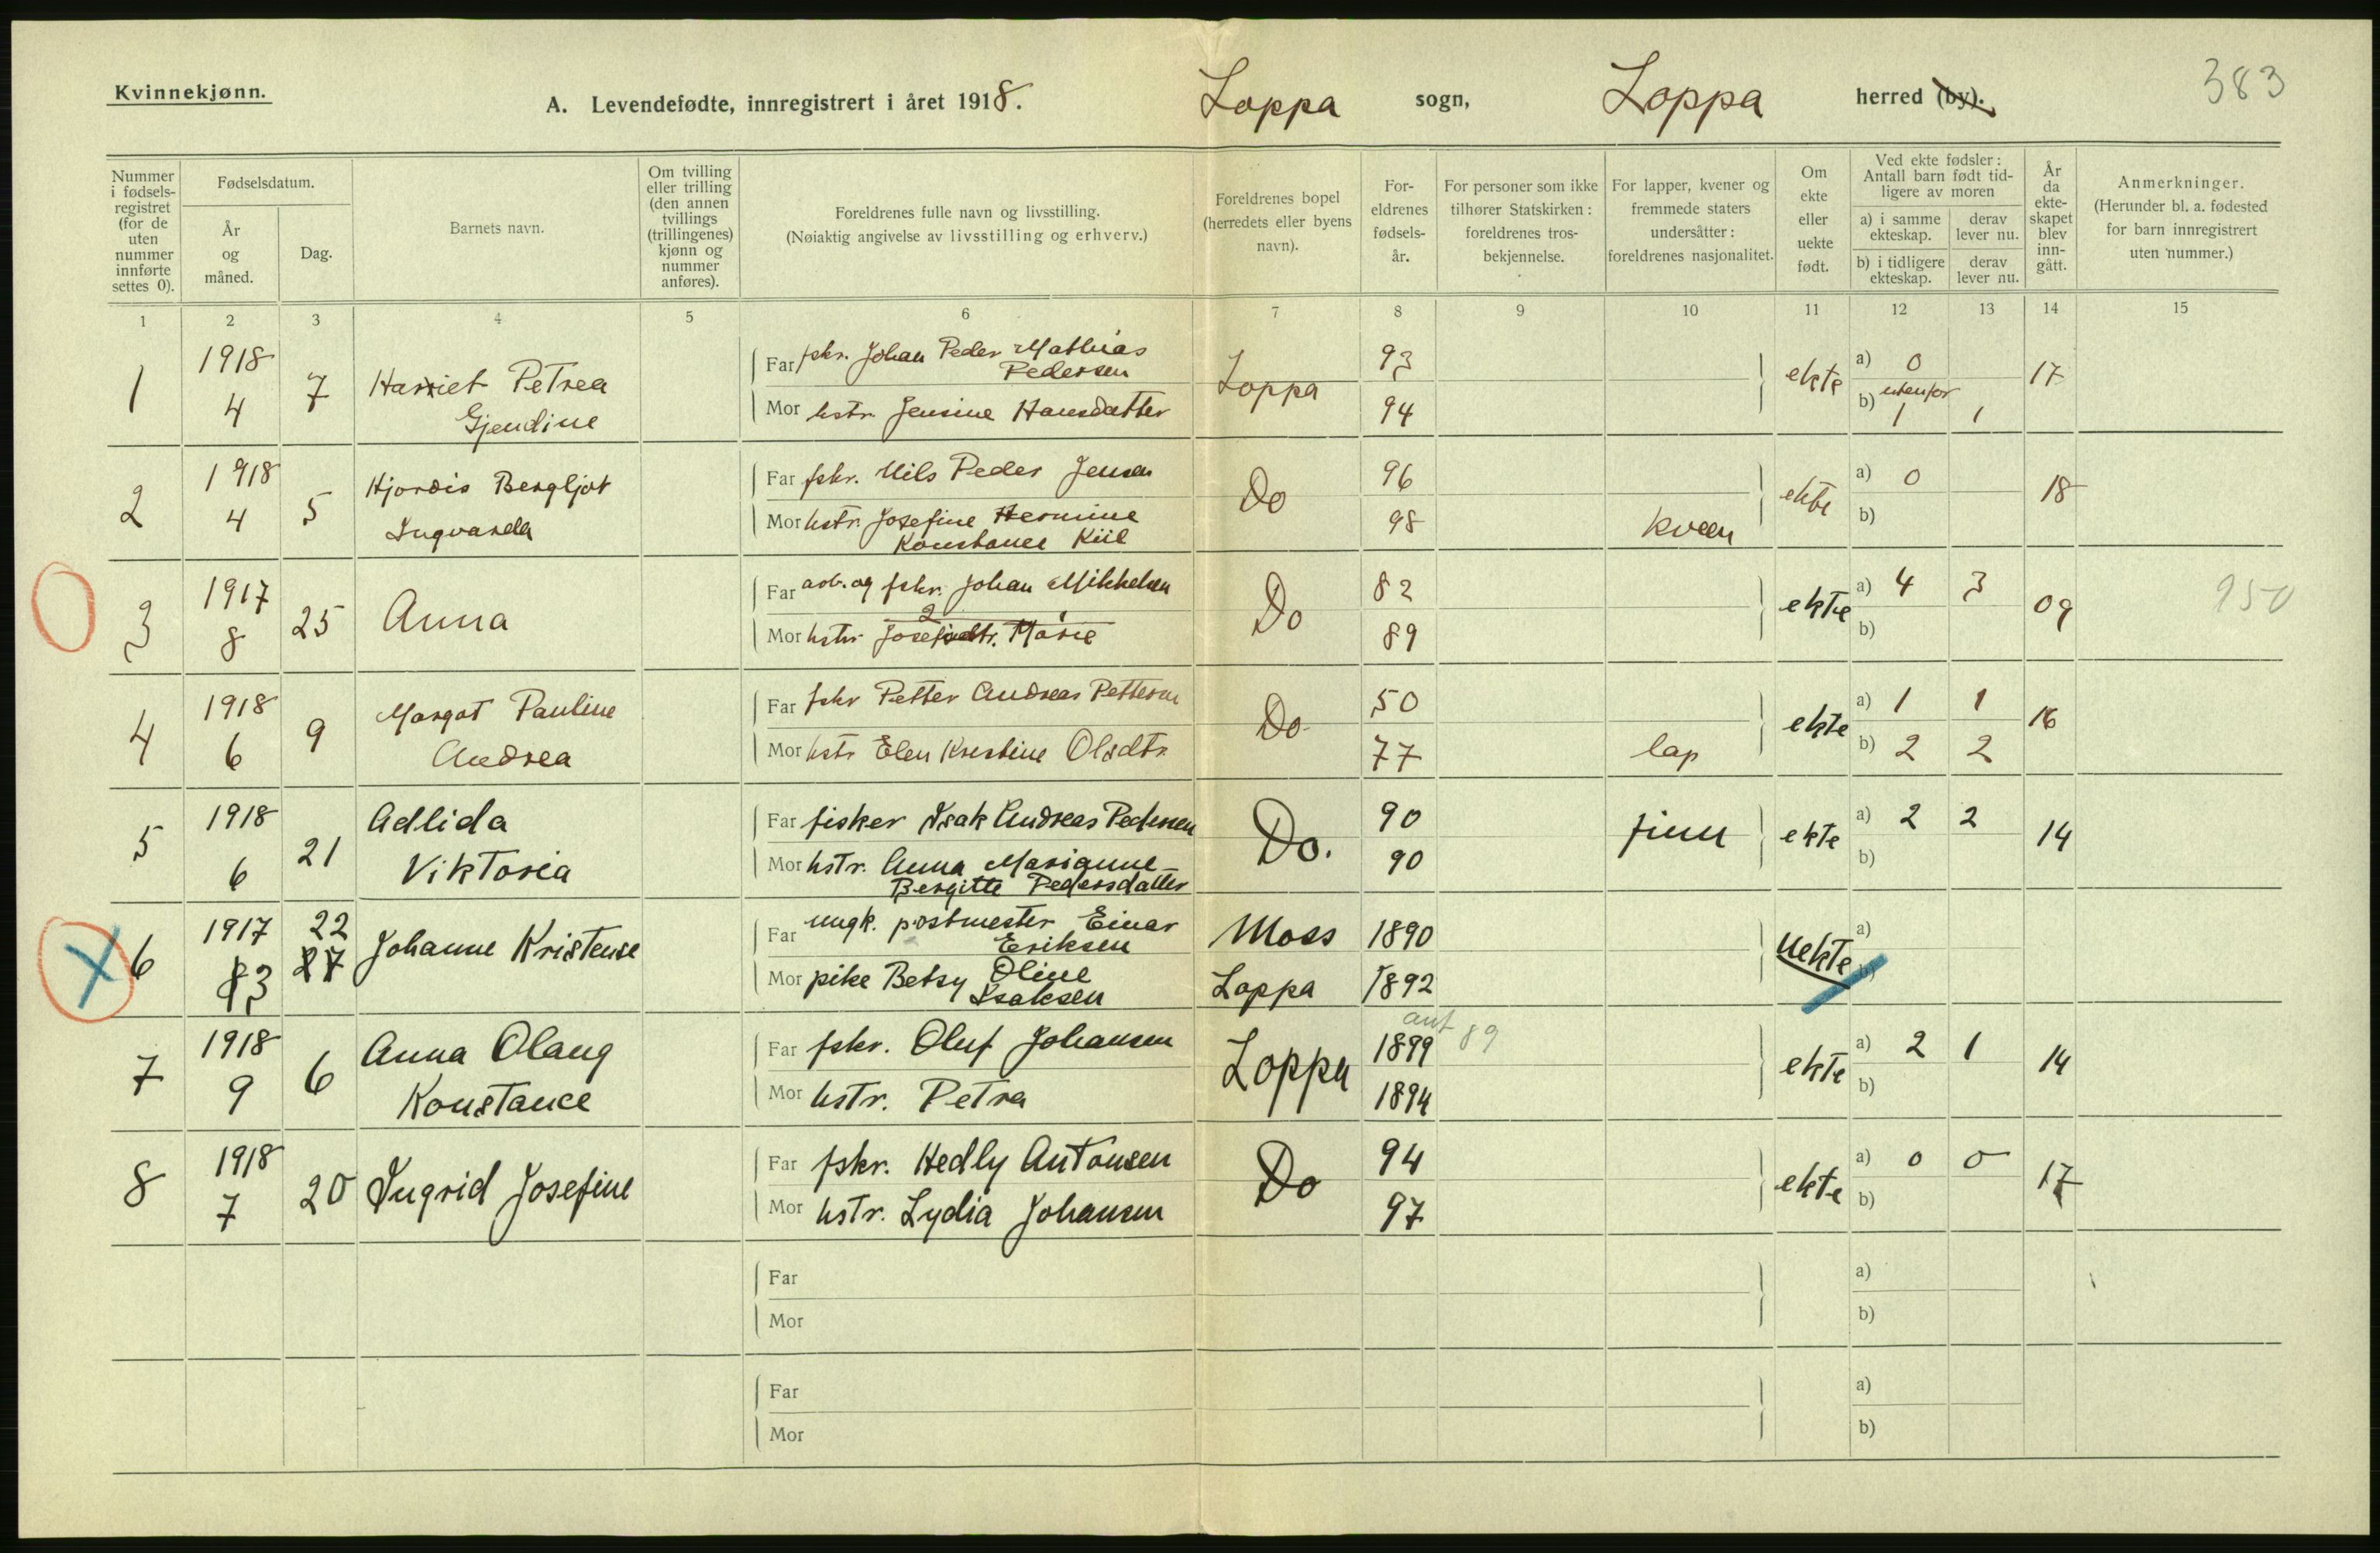 Kvinnekjønn.
A. Levendefødte, innregistrert i året 1918. Loppa sogn, Loppa herred (by). 383
Nummer i fødsels-registret (for de uten nummer innførte settes 0).
Fødselsdatum.
År og måned.
Dag.
Barnets navn.
Om tvilling eller trilling (den annen tvillings (trillingenes) kjønn og nummer anføres).
Foreldrenes fulle navn og livsstilling.
(Nøiaktig angivelse av livsstilling og erhverv.)
Foreldrenes bopel (herredets eller byens navn).
For-eldrenes fødsels-år.
For personer som ikke tilhører Statskirken: foreldrenes tros-bekjennelse.
For lapper, kvener og fremmede staters undersåtter: foreldrenes nasjonalitet.
Om ekte eller uekte født.
Ved ekte fødsler: Antall barn født tid-ligere av moren
a) i samme ekteskap. derav lever nu.
b) i tidligere ekteskap. derav lever nu.
År da ekte-skapet blev inn-gått.
Anmerkninger.
(Herunder bl. a. fødested for barn innregistrert uten nummer.)
1 2 3 4 5 6 7 8 9 10 11 12 13 14 15
1 1918 4 7 Harriet Petrea
Gjendine
Far fskr. Johan Peder Mathias
Pedersen
Mor hstr. Jensine Hansdatter
Loppa 93 94 ekte a) 0 b) utenfor 1 1 17
2 1918 4 5 Hjordis Bergljot
Ingvarda
Far fskr. Nils Peder Jensen
Mor hstr. Josefine Hermine
Konstance Kiil
Do 96 98 kveen ekte a) 0 b) 18
3 1917 8 25 Anna
Far arb. og fskr. Johan Mikkelsen
Mor hstr. Josefindtr. Marie
2
Do 82 89 ekte a) 4 3 b) 09 950
4 1918 6 9 Margot Pauline
Andrea
Far fskr Petter Andreas Pettersen
Mor hstr Elen Kristine Olsdtr
Do 50 77 lap ekte a) 1 1 b) 2 2 16
5 1918 6 21 Adlida
Viktoria
Far fisker Isak Andreas Pedersen
Mor hstr. Anna Marianne
Bergitte Pedersdatter
Do. 90 90 finn ekte a) 2 2 b) 14
6 1917 3 22 27 Johanne Kristense
Far ungk. postmester Einar
Eriksen
Mor pike Betsy Oline
Isaksen
Moss 1890
Loppa 1892 uekte a) b)
7 1918 9 6 Anna Olaug
Konstance
Far fskr. Oluf Johansen
Mor hstr. Petra
Loppa ant 89 1899 1894 ekte a) 2 1 b) 14
8 1918 7 20 Ingrid Josefine
Far fskr. Hedly Antonsen
Mor hstr. Lydia Johansen
Do 94 97 ekte a) 0 0 b) 17
Far
Mor
a)
b)
Far
Mor
a)
b)